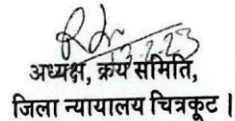 13-2-23
अध्यक्ष, क्रय समिति,
जिला न्यायालय चित्रकूट ।